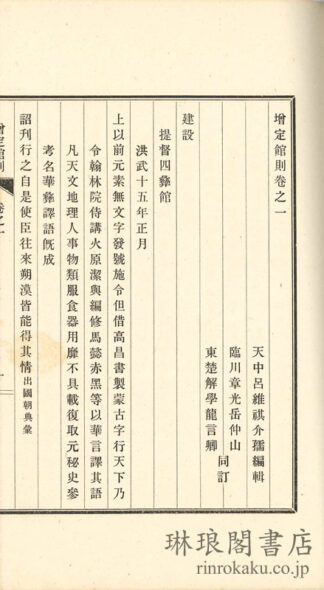 增定館則卷之一
天中呂維祺介孺編輯
臨川章光岳仲山
同訂
東楚解學龍言卿
建設
提督四彝館
洪武十五年正月
上以前元素無文字發號施令但借高昌書製蒙古字行天下乃
令翰林院侍講火原潔與編修馬懿赤黑等以華言譯其語
凡天文地理人事物類服食器用靡不具載復取元秘史參
考名華彝譯語旣成
詔刊行之自是使臣往來朔漠皆能得其情出國朝典彙
增定館則 卷之一
琳琅閣書店
rinrokaku.co.jp